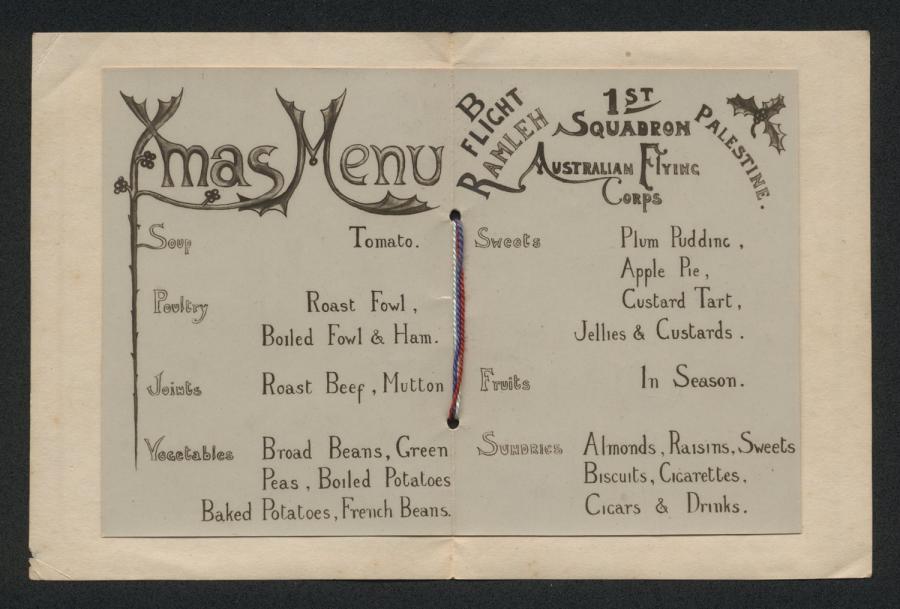 Xmas Menu
Soup Tomato.
Poultry Roast Fowl,
Boiled Fowl & Ham.
Joints Roast Beef, Mutton
Vegetables Broad Beans, Green
Peas, Boiled Potatoes
Baked Potatoes, French Beans.
B FLIGHT
RAMLEH
1ST
SQUADRON
AUSTRALIAN FLYING
CORPS
PALESTINE.
Sweets Plum Pudding,
Apple Pie,
Custard Tart,
Jellies & Custards.
Fruits In Season.
SUNDRIES Almonds, Raisins, Sweets
Biscuits, Cigarettes,
Cigars & Drinks.